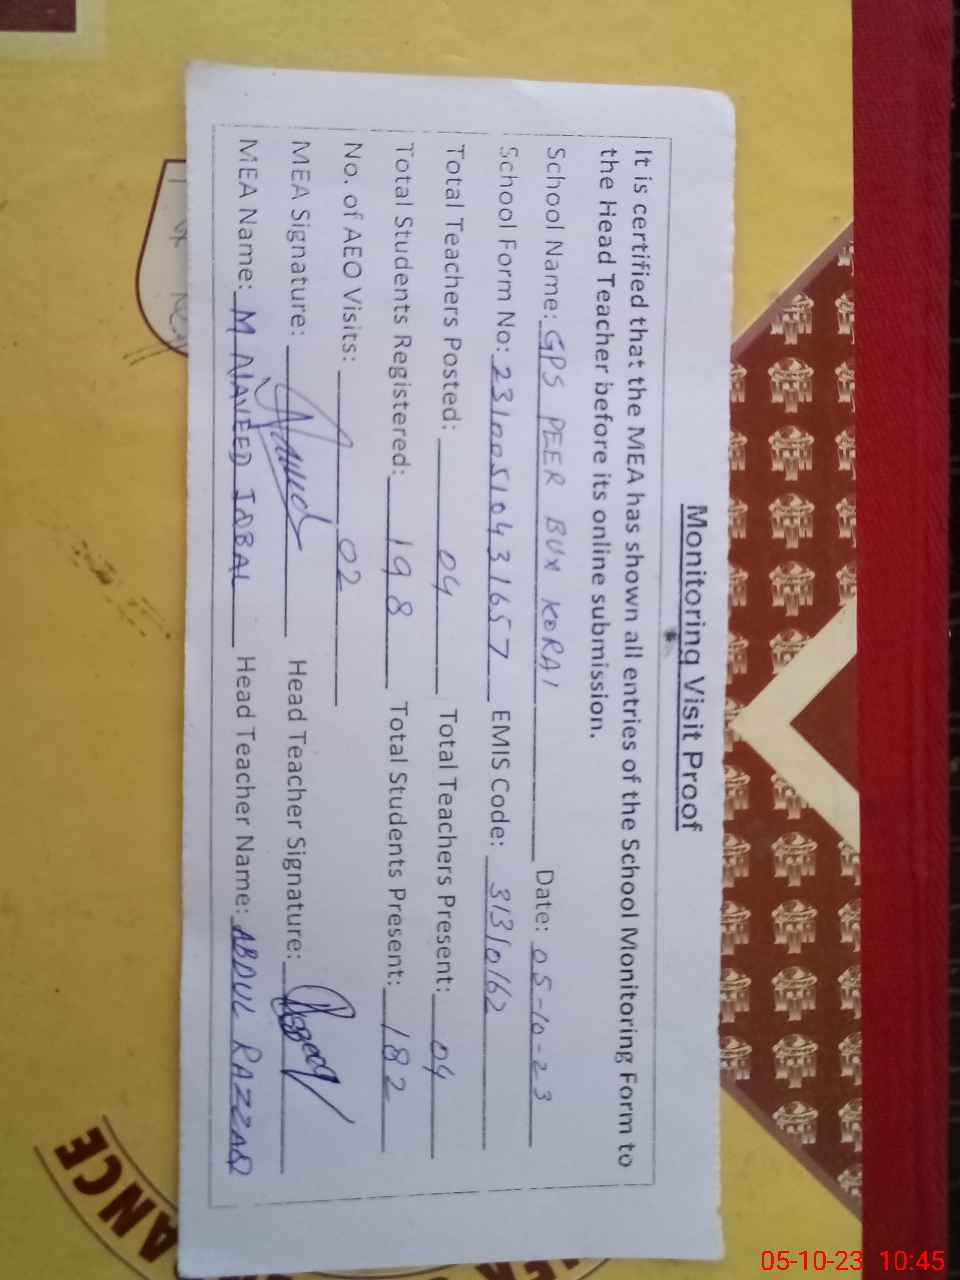 Monitoring Visit Proof
It is certified that the MEA has shown all entries of the School Monitoring Form to
the Head Teacher before its online submission.
School Name: GPS PEER BUX KORAI Date: 05-10-23
School Form No: 23100510431657 EMIS Code: 31310162
Total Teachers Posted: 04 Total Teachers Present: 04
Total Students Registered: 198 Total Students Present: 182
No. of AEO Visits: 02
MEA Signature: Head Teacher Signature:
MEA Name: M NAVEED IQBAL Head Teacher Name: ABDUL RAZZAQ
ANCE
05-10-23 10:45